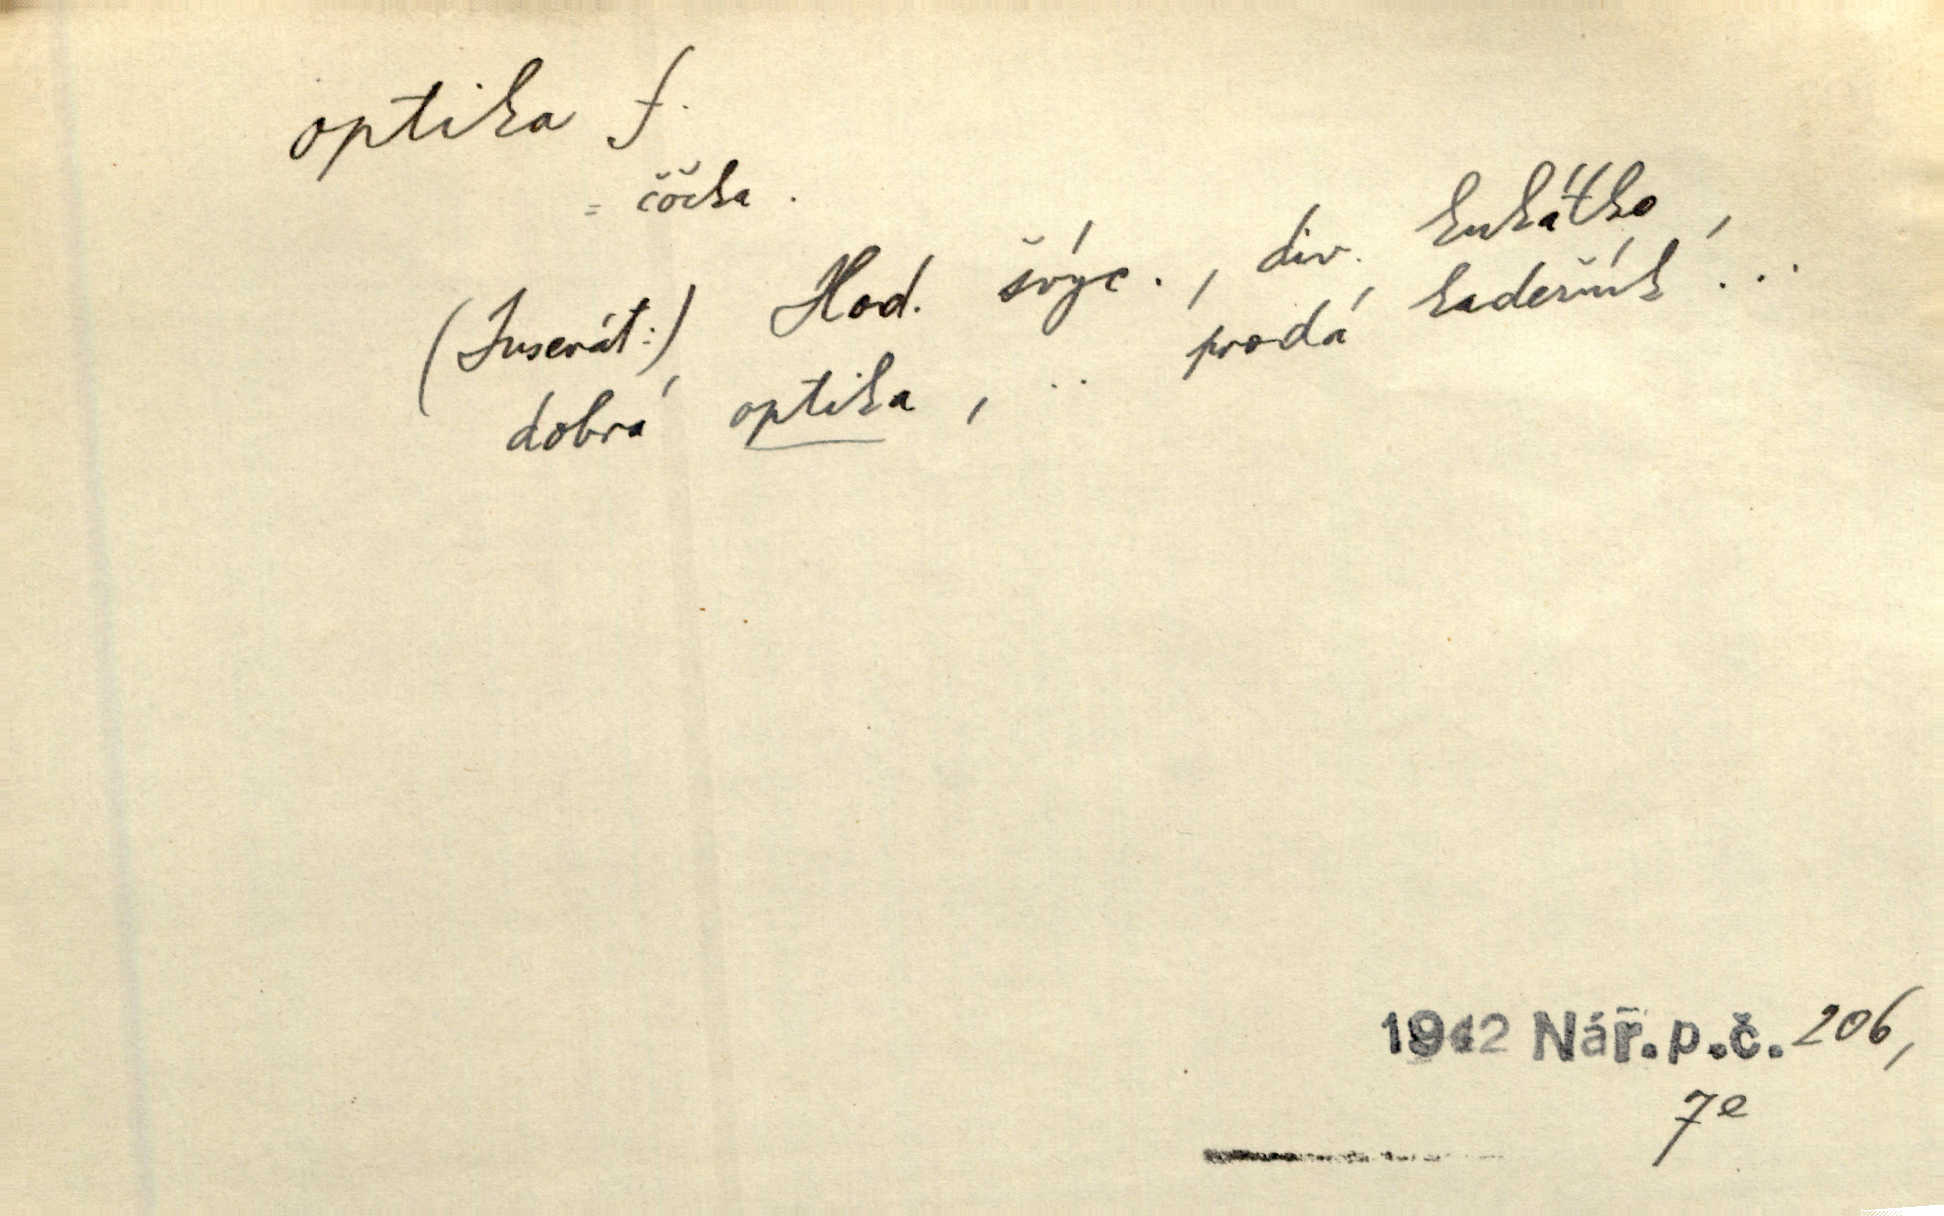 optika f.
= čočka.
(Inserát:) Hod. švýc., div. kukátko,
dobrá optika, .. prodá kadeřník...
1942 Nář.p.č. 206,
7e